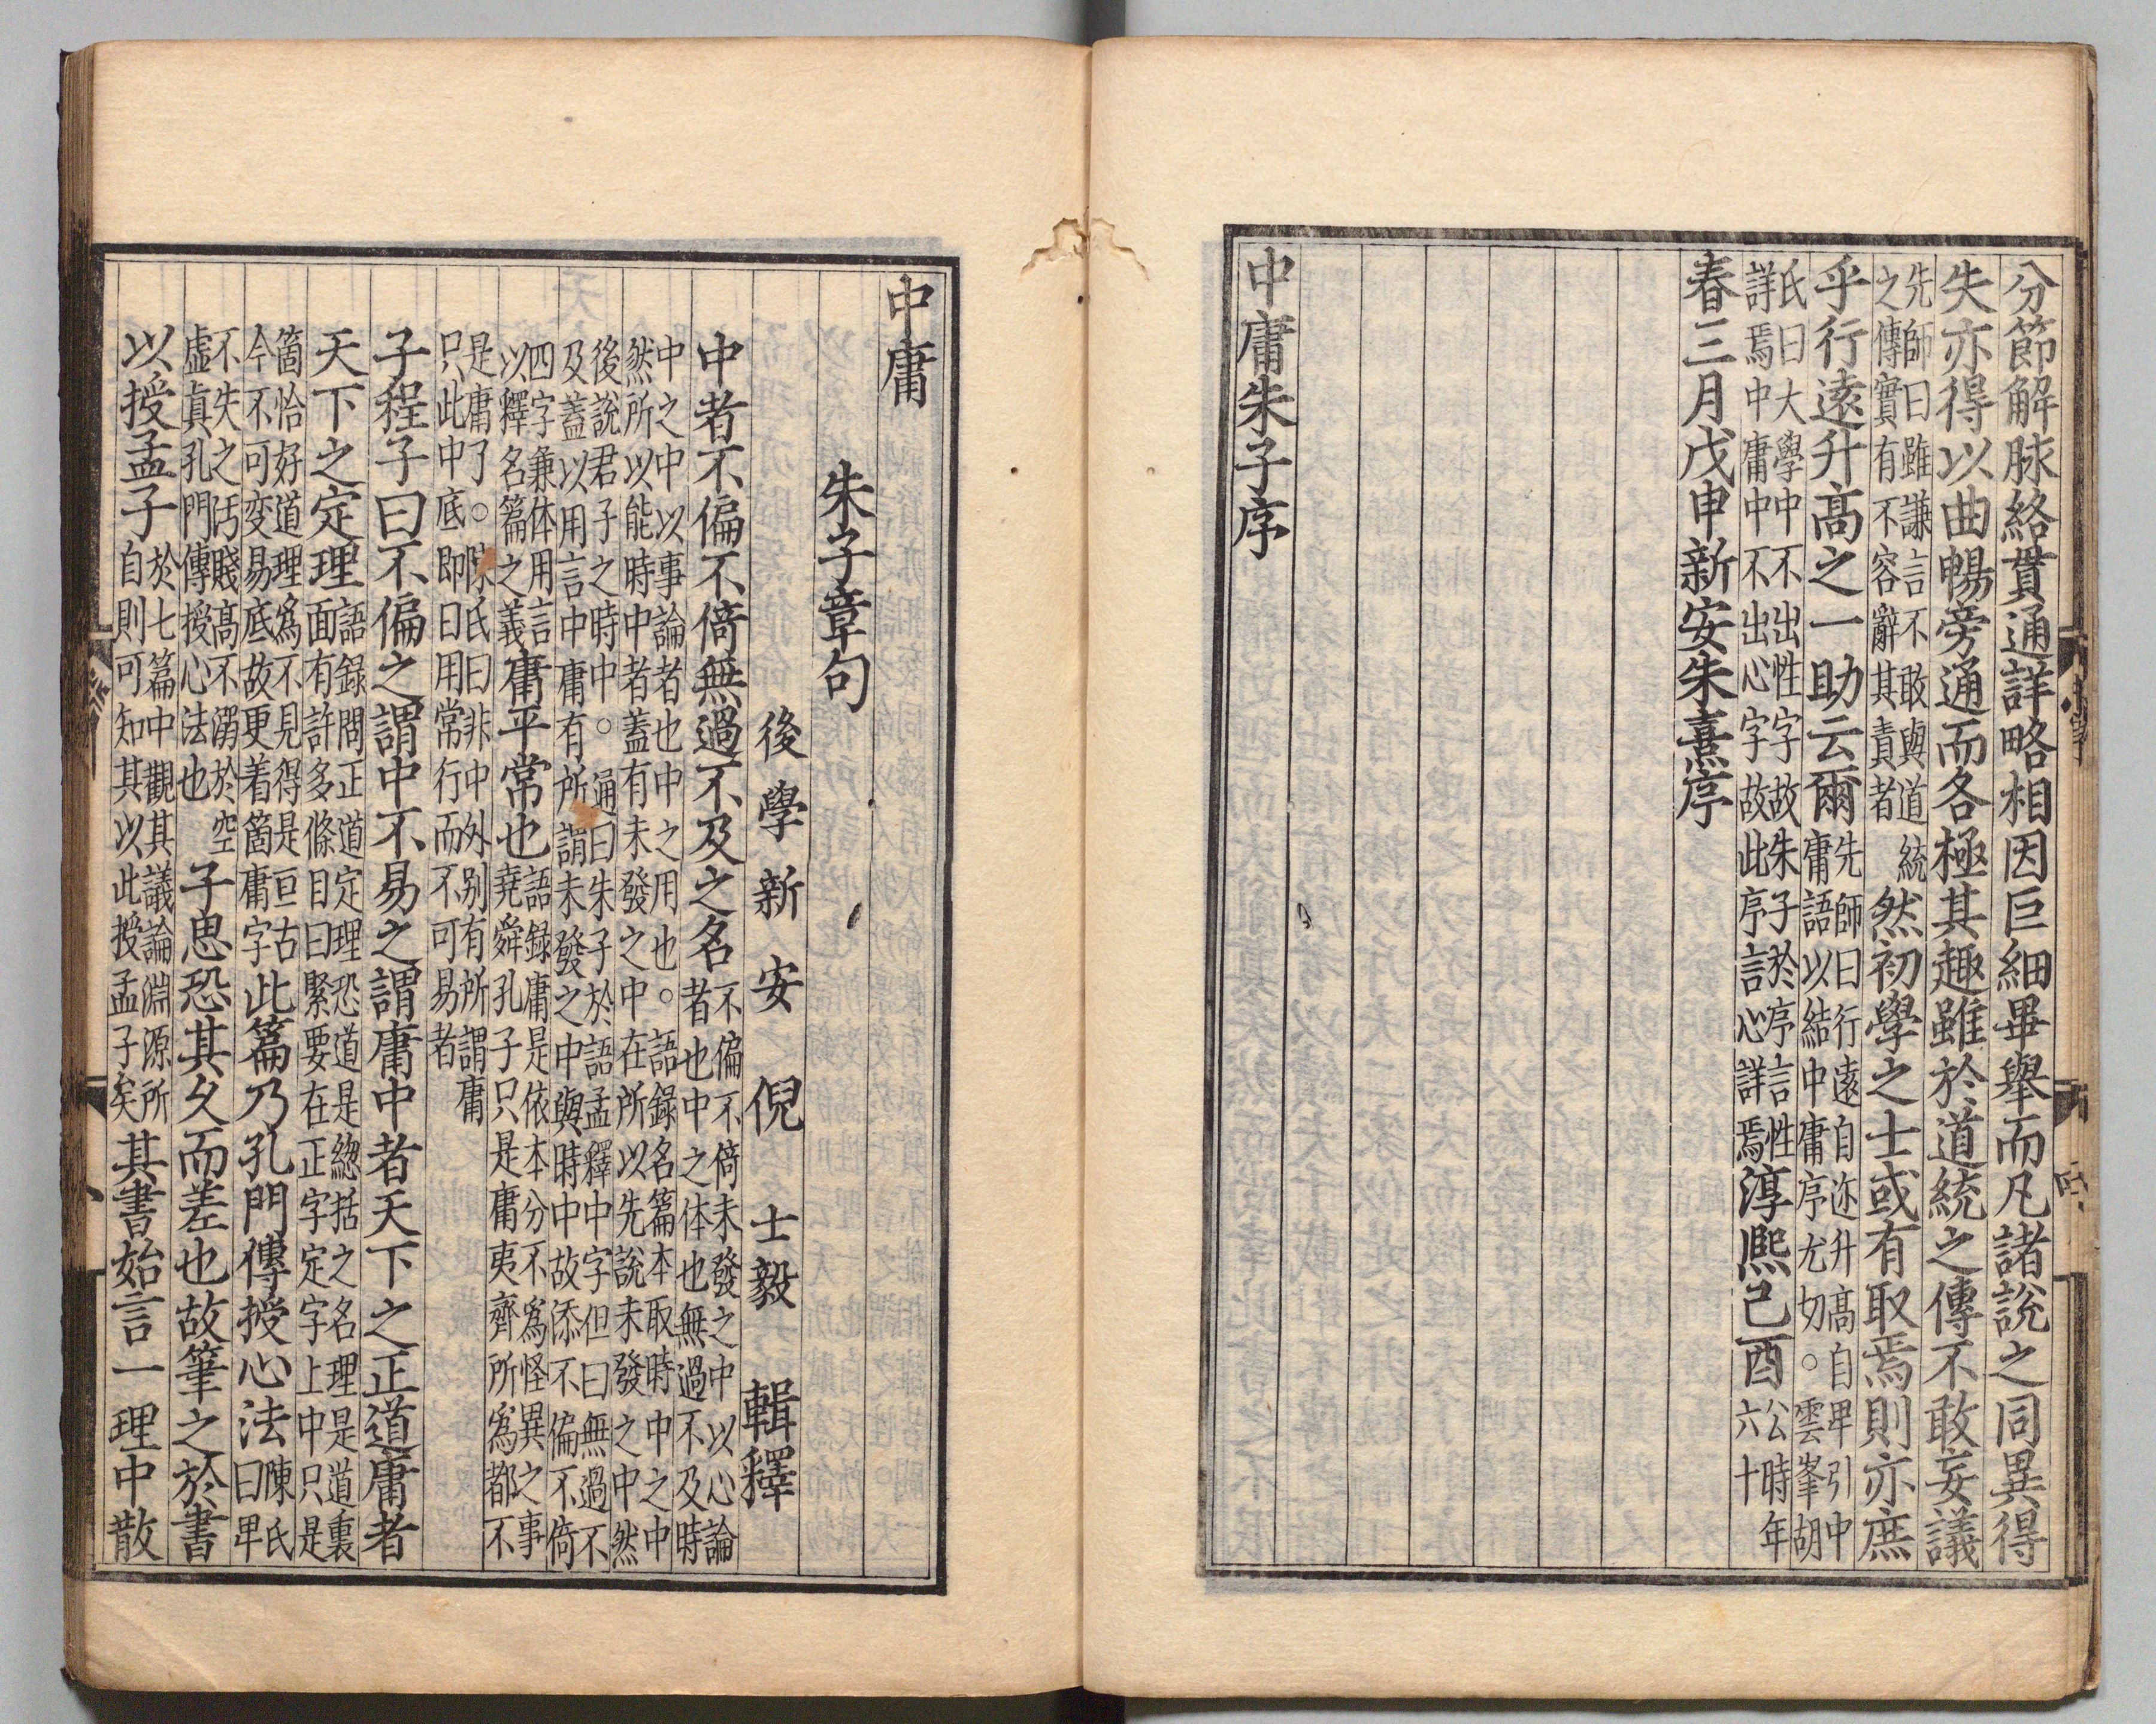 分節解脉絡貫通詳略相因巨細畢舉而凡諸說之同異得
失亦得以曲暢旁通而各極其趣雖於道統之傳不敢妄議
先師曰雖謙言不敢與道統
之傳實有不容辭其責者
然初學之士或有取焉則亦庶
乎行遠升髙之一助云爾
先師曰行遠自迩升髙自卑引中
庸語以結中庸序尤切○雲峯胡
氏曰大學中不出性字故朱子於序言性
詳焉中庸中不出心字故此序言心詳焉
淳熈己酉
公時年
六十
春三月戊申新安朱熹序
中庸朱子序
中庸
朱子章句
後學新安倪士毅輯釋
中者不偏不倚無過不及之名
不偏不倚未發之中以心論
者也中之体也無過不及時
中之中以事論者也中之用也○語錄名篇本取時中之中
然所以能時中者蓋有未發之中在所以先說未發之中然
後說君子之時中○通曰朱子於語孟釋中字但曰無過不
及蓋以用言中庸有所謂未發之中與時中故添不偏不倚
四字兼体用言
以釋名篇之義
庸平常也
語錄庸是依本分不爲怪異之事
堯舜孔子只是庸夷齊所爲都不
是庸了○陳氏曰非中外別有所謂庸
只此中底即日用常行而不可易者
子程子曰不偏之謂中不易之謂庸中者天下之正道庸者
天下之定理
語録問正道定理恐道是緫括之名理是道裏
面有許多條目曰緊要在正字定字上中只是
箇恰好道理爲不見得是亘古
今不可变易底故更着箇庸字
此篇乃孔門傳授心法
陳氏
曰卑
不失之汚賤髙不溺於空
虛眞孔門傳授心法也
子思恐其久而差也故筆之於書
以授孟子
於七篇中觀其議論淵源所
自則可知其以此授孟子矣
其書始言一理中散